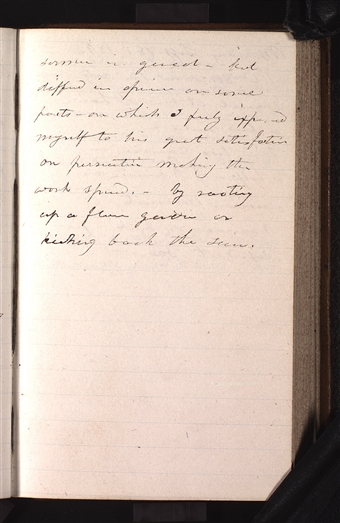 sermon in general - but
differed in opinion on some
parts - on which I fully expressed
myself to his great satisfaction
on persecution making the
work spread. - By rooting
up a flower garden or
kicking back the